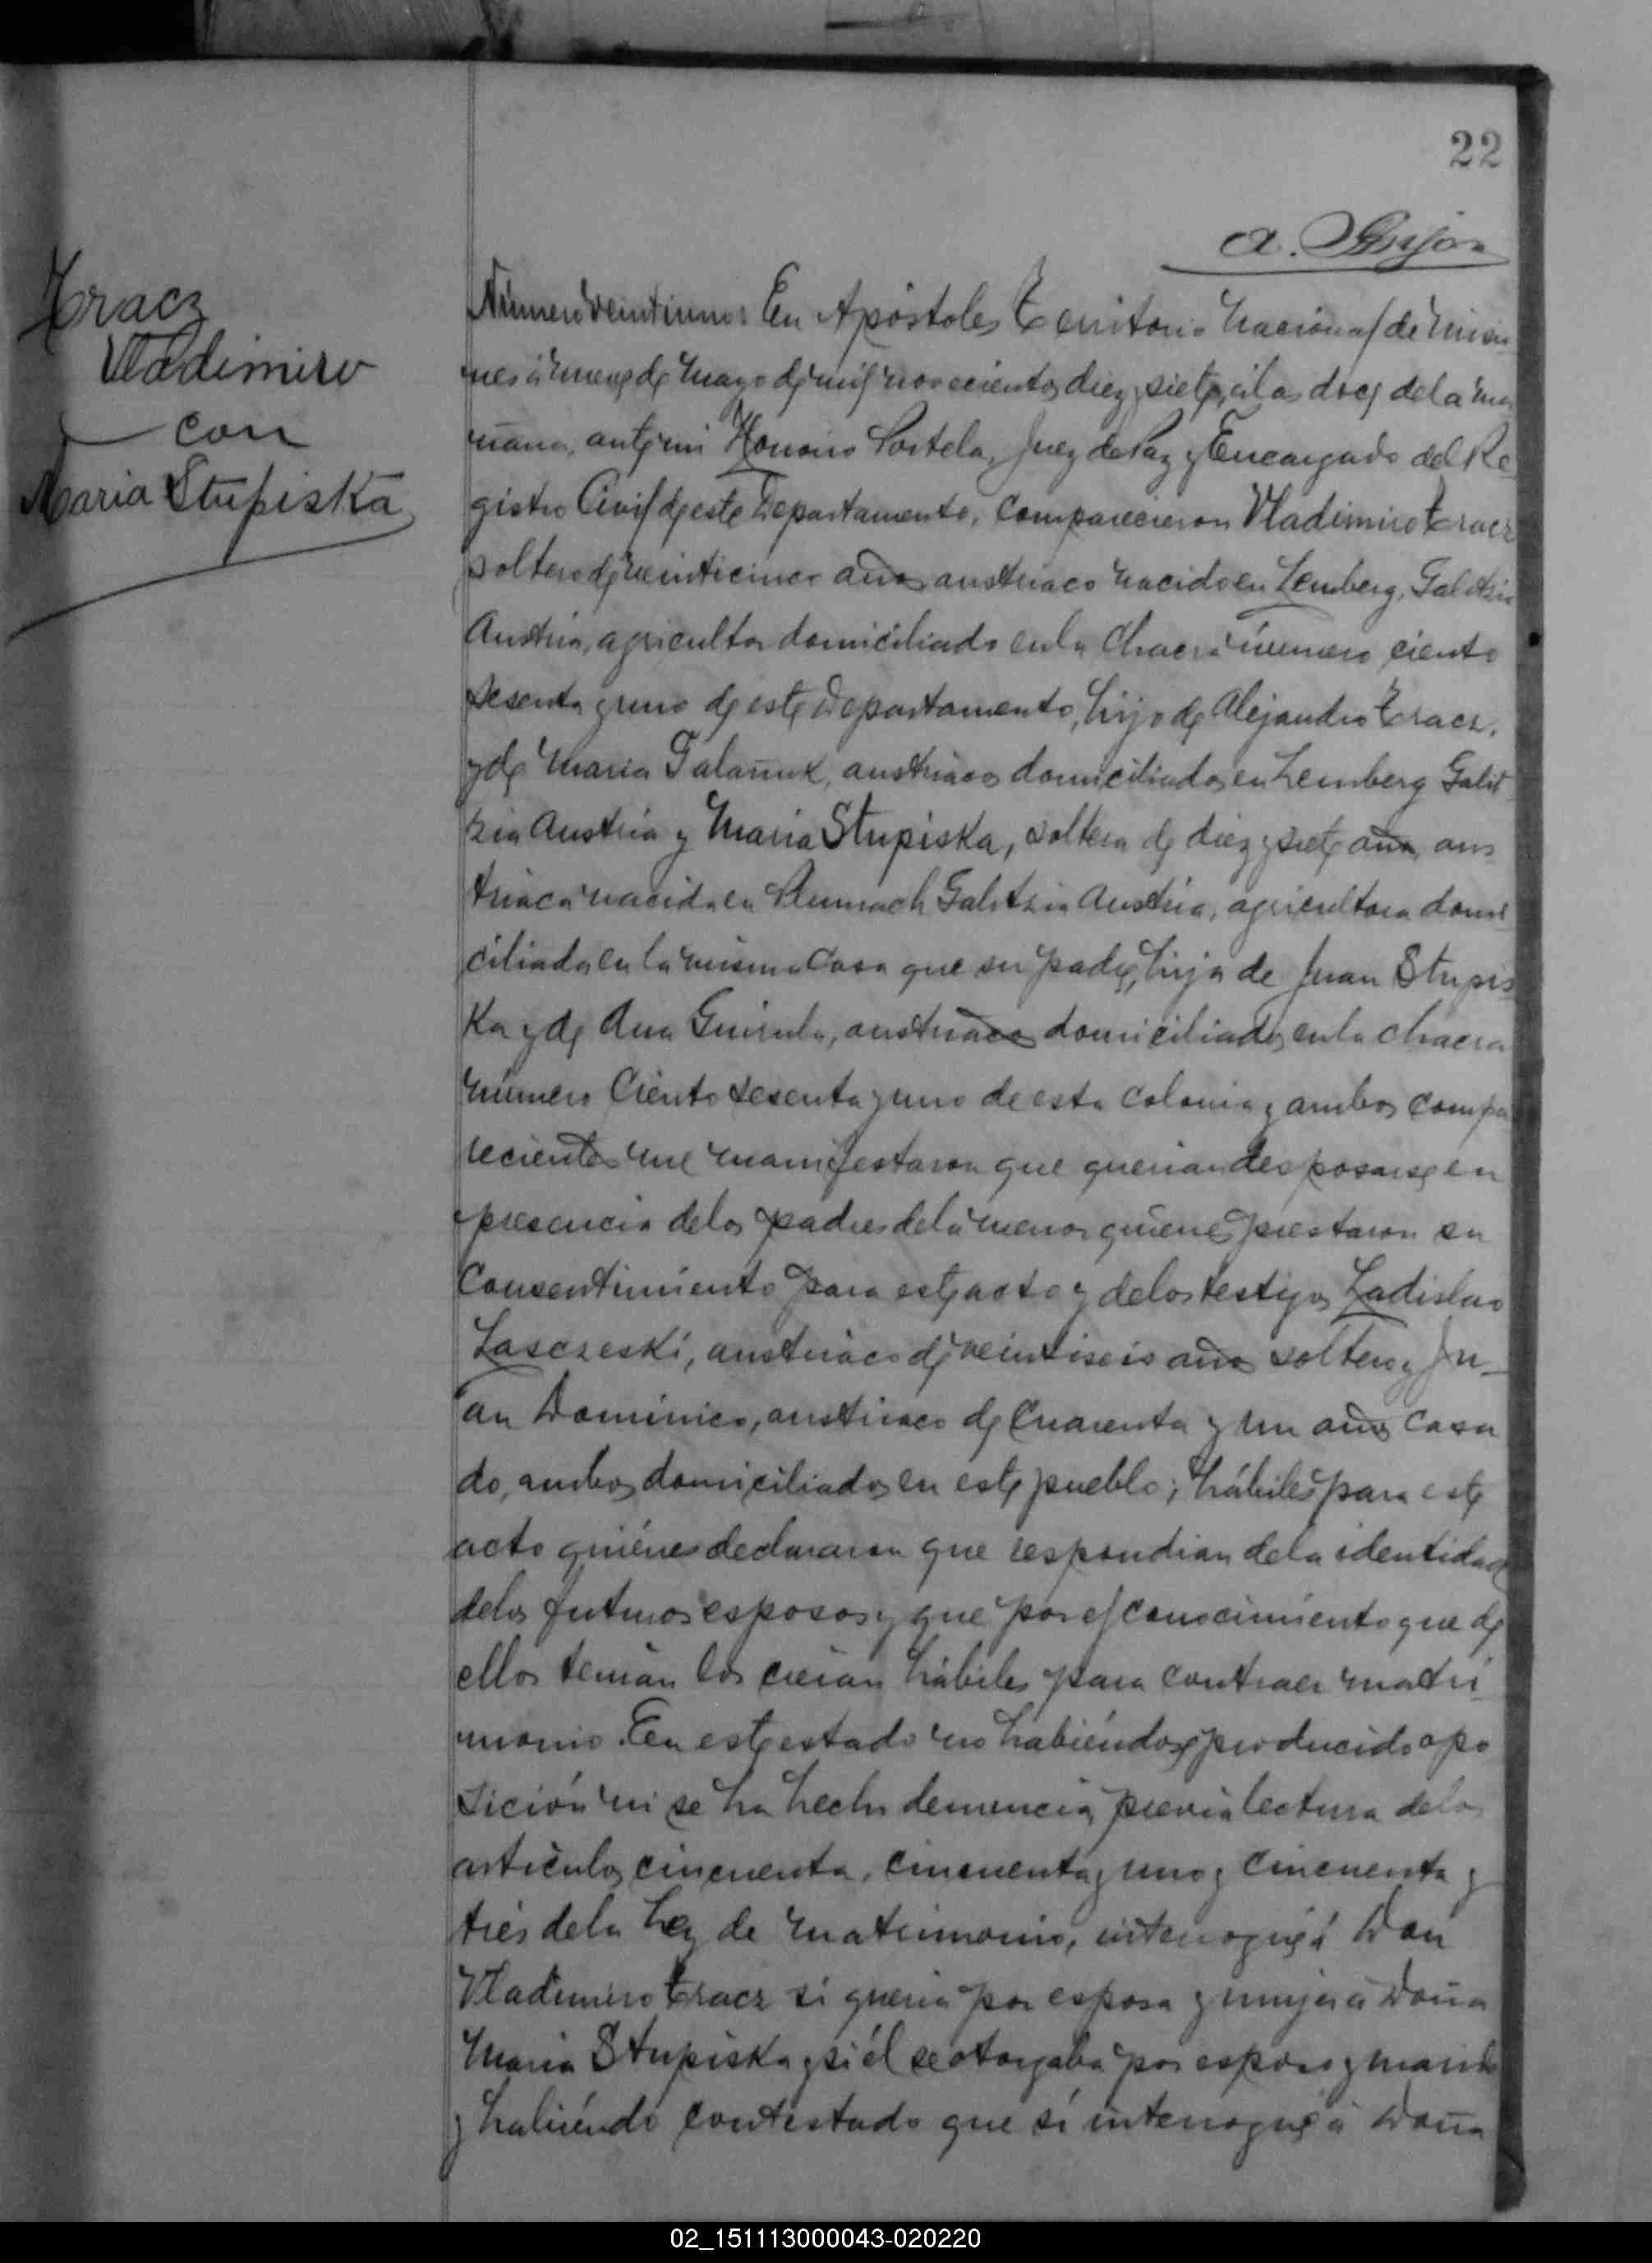 22
Tracz
Vladimiro
con
Maria Stupiska
Número veintiuno: En Apóstoles Territorio Nacional de Misio
nes á nueve de Mayo de mil novecientos diez y siete, á las doce de la ma
ñana, ante mi Honorio Portela, Juez de Paz y Encargado del Re
gistro Civil de este Departamento, comparecieron Vladimiro Tracz
soltero de veinticinco años austriaco nacido en Lemberg, Galitzia
Austria, agricultor domiciliado en la chacra número ciento
sesenta y uno de este Departamento, hijo de Alejandro Tracz,
y de Maria, austriacos domiciliados en Lemberg Galit
zia Austria y Maria Stupiska, soltera de diez y siete años, aus
triaca nacida en Galitzia Austria, agricultora domi
ciliada en la misma casa que su padre, hija de Juan Stupis
ka y de Ana, austriacos domiciliados en la chacra
número ciento sesenta y uno de esta colonia y ambos compa
recientes me manifestaron que querian desposarse en
presencia de los padres de la menor quienes prestaron su
consentimiento para este acto y de los testigos Ladislao
Lasczeski, austriaco de veintiseis años soltero y Ju-
an Dominico, austriaco de cuarenta y un años casa
do, ambos domiciliados en este pueblo; hábiles para este
acto quiénes declararon que respondian de la identidad
de los futuros esposos y que por el conocimiento que de
ellos tenian los creian hábiles para contraer matri
monio. En este estado no habiéndose producido opo
sición ni se ha hecho denuncia, previa lectura de los
articulos cincuenta, cincuenta y uno y cincuenta y
tres de la Ley de Matrimonio, interrogué á Don
Vladimiro Tracz si queria por esposa y mujer á Doña
Maria Stupiska y si él se otorgaba por esposo y marido
y habiéndo contestado que sí interrogué á Doña
02_151113000043-020220